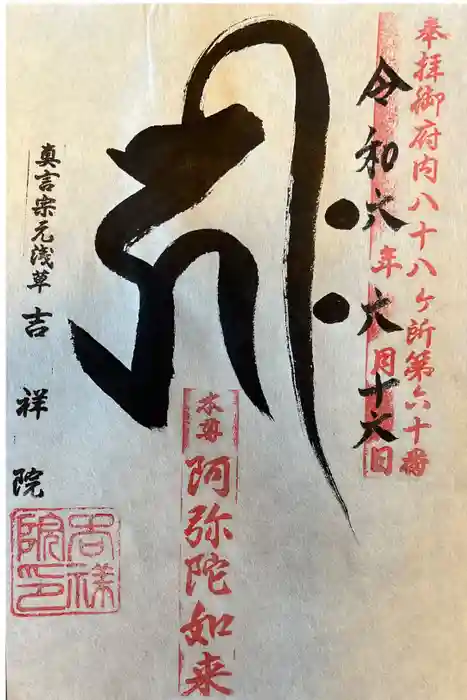 奉拝御府内八十八ケ所第六十番
令和六年六月十六日
𑖮𑖿𑖨𑖱𑖾
本尊
阿弥陀如来
真言宗元浅草
吉祥院
吉祥
院印